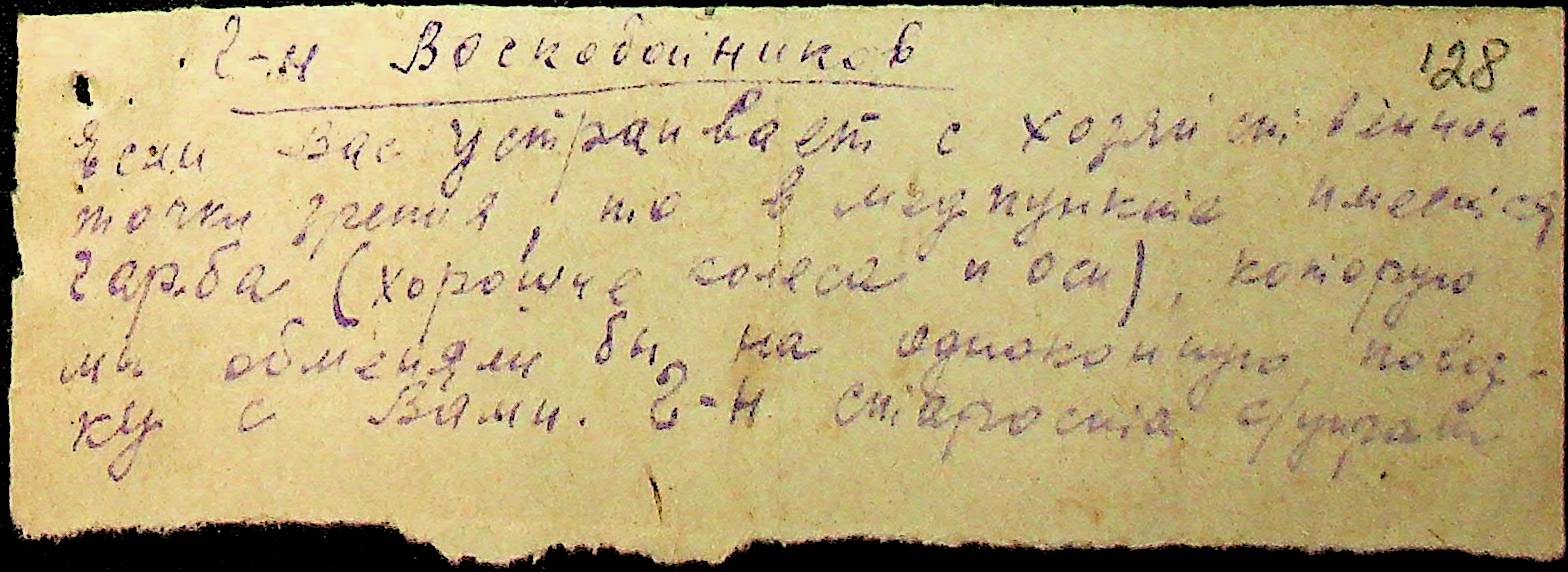 Г-н Воскобойников
128
Если Вас устраивает с хозяйственной
точки зрения, то в медпункте имеется
гарба (хорошие колеса и оси), которую
мы обменяли бы на одноконную повоз-
ку с Вами. Г-н староста